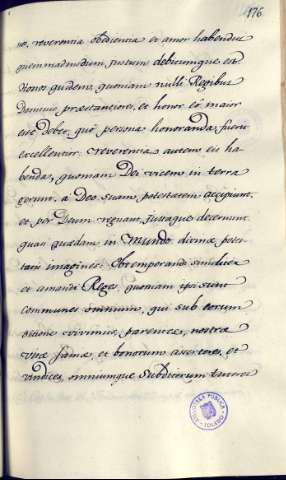 176
no, reverentia obedientia et amor habendus
quemadmodum, justum debitumque est
Honor quidem, quoniam nulli Regibus
Dominis, præstantiores, et honor eo maior
esse debet, quo persona honoranda, fuerit
excellentior: reverentia autem eis ha
benda, quoniam Dei vicem in terra
gerunt, a Deo suam potestatem accipiunt,
et per Deum regnant, Justaque decernunt
quasi quædam in Mundo divinæ potes
tatis imagines. Obtemperandi simulque
et amandi Reges, quoniam ipsi sunt
communes omnium, qui sub eorum
vivimus, parentes, nostræ
vitæ famæ, et bonorum assertores, et
vindices, omniumque Subditorum tutores
BIBLIOTECA PÚBLICA TOLEDO